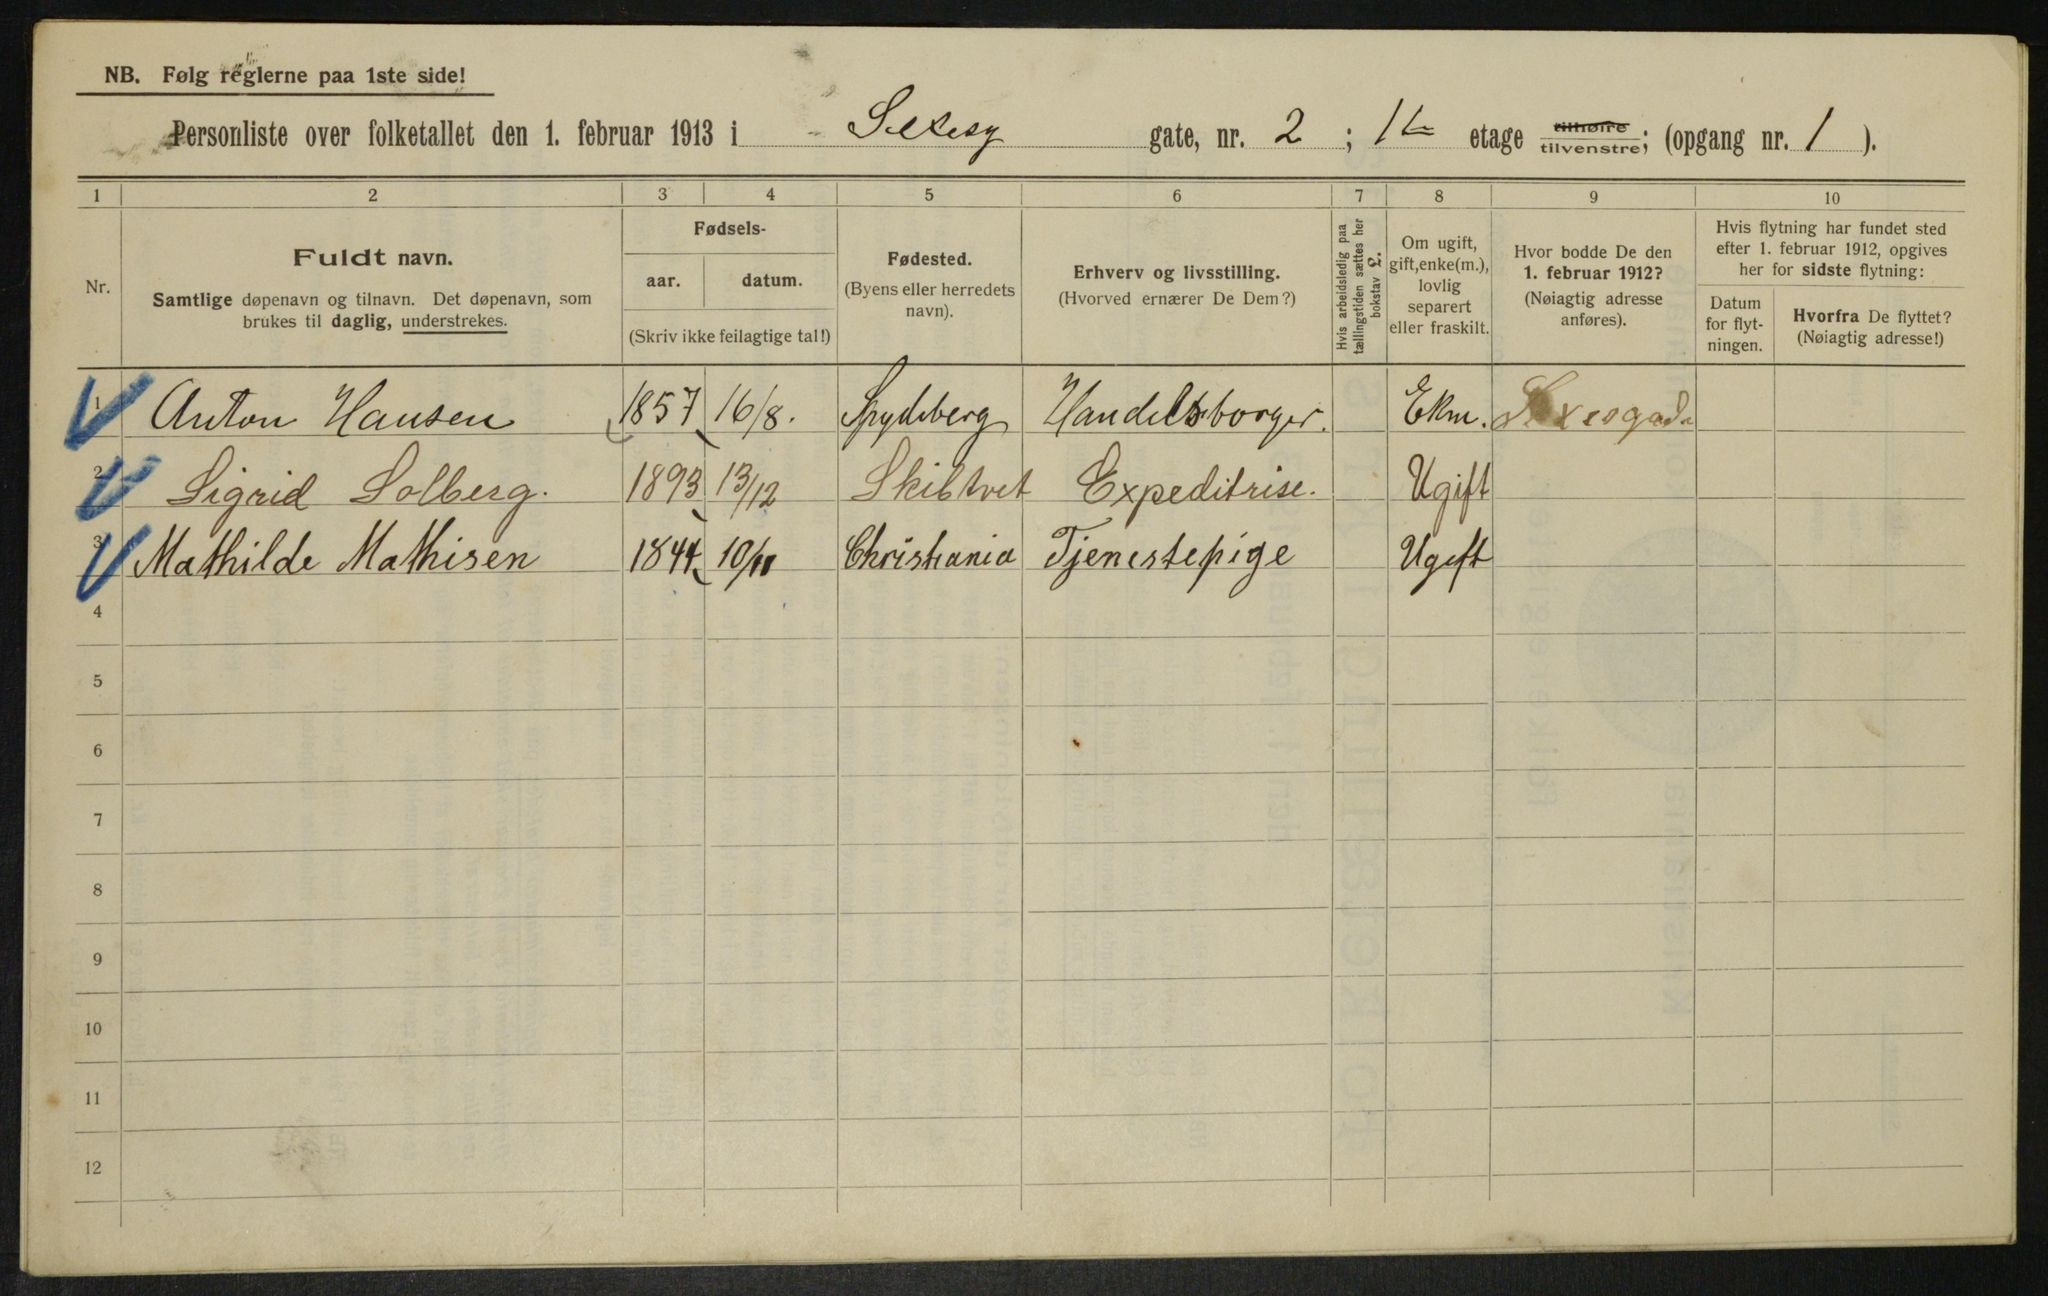 NB. Følg reglerne paa 1ste side!
Personliste over folketallet den 1. februar 1913 i gate, nr. 2 ; 1ste etage tilhøire tilvenstre; (opgang nr. 1 ).
1 2 3 4 5 6 7 8 9 10
Nr.
Fuldt navn.
Samtlige døpenavn og tilnavn. Det døpenavn, som
brukes til daglig, understrekes.
Fødsels-
aar. datum.
(Skriv ikke feilagtige tal!)
Fødested.
(Byens eller herredets
navn).
Erhverv og livsstilling.
(Hvorved ernærer De Dem?)
Hvis arbeidsledig paa
tællingstiden sættes her
bokstav L.
Om ugift,
gift,enke(m.),
lovlig
separert
eller fraskilt.
Hvor bodde De den
1. februar 1912?
(Nøiagtig adresse
anføres).
Hvis flytning har fundet sted
efter 1. februar 1912, opgives
her for sidste flytning:
Datum
for flyt-
ningen.
Hvorfra De flyttet?
(Nøiagtig adresse!)
1 Anton Hansen 1857 16/8. Spydeberg Handelsborger. Ekm.
2 Sigrid Solberg. 1893 13/12 Skibtvet Expeditrise. Ugift
3 Mathilde Mathisen 1844 10/11 Christiania Tjenestepige Ugift
4
5
6
7
8
9
10
11
12